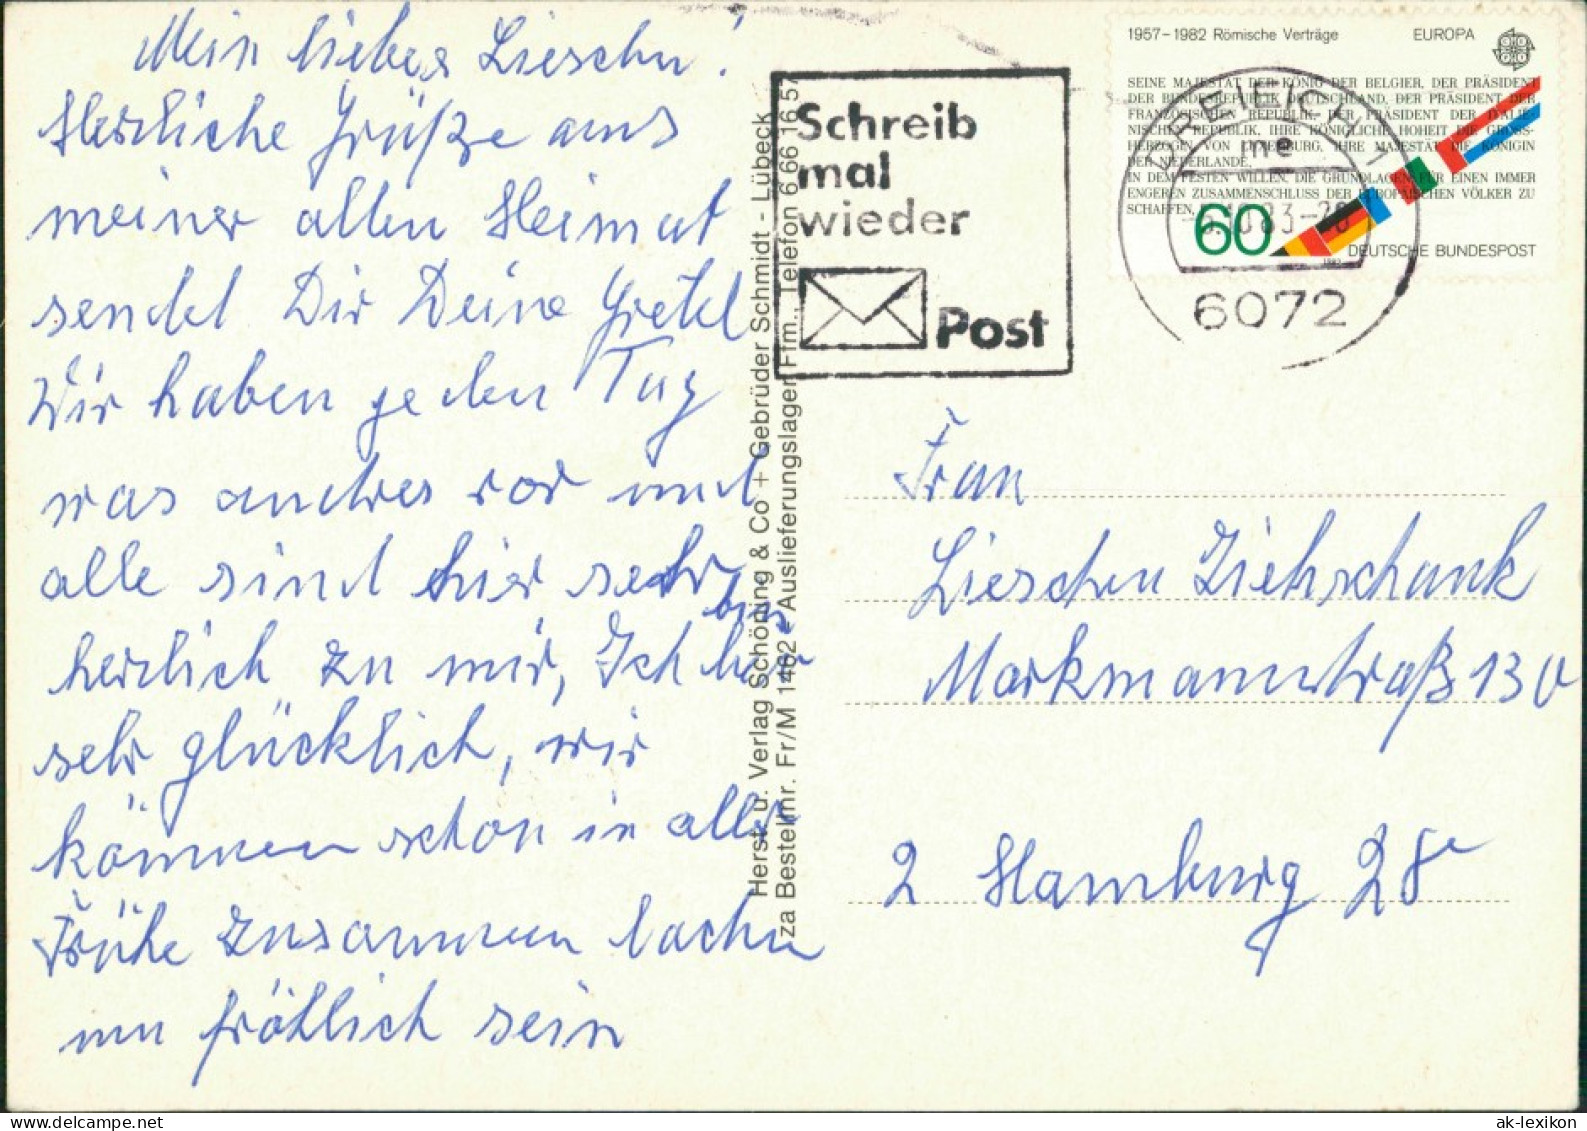 Mein liebes Lieschen!
Herzliche Grüße aus
meiner alten Heimat
sendet Dir Deine Gretel
Wir haben jeden Tag
was andres vor und
alle sind hier sehr
herzlich zu mir, Ich bin
sehr glücklich, wir
können schon in aller
Frühe zusammen lachen
un fröhlich sein
Herst. u. Verlag Schöning & Co + Gebrüder Schmidt - Lübeck
za Bestellnr. Fr/M 1462 - Auslieferungslager Ffm., Telefon 6 66 16 57
Schreib
mal
wieder
Post
1957–1982 Römische Verträge EUROPA
SEINE MAJESTÄT DER KÖNIG DER BELGIER, DER PRÄSIDENT
DER BUNDESREPUBLIK DEUTSCHLAND, DER PRÄSIDENT DER
FRANZÖSISCHEN REPUBLIK, DER PRÄSIDENT DER ITALIE-
NISCHEN REPUBLIK, IHRE KÖNIGLICHE HOHEIT DIE GROSS-
HERZOGIN VON LUXEMBURG, IHRE MAJESTÄT DIE KÖNIGIN
DER NIEDERLANDE,
IN DEM FESTEN WILLEN, DIE GRUNDLAGEN FÜR EINEN IMMER
ENGEREN ZUSAMMENSCHLUSS DER EUROPÄISCHEN VÖLKER ZU
SCHAFFEN,
60
DEUTSCHE BUNDESPOST
DREIEICH
1
83-20
6072
Frau
Lieschen Ziehschank
Markmannstraß 130
2 Hamburg 28
ak-lexikon